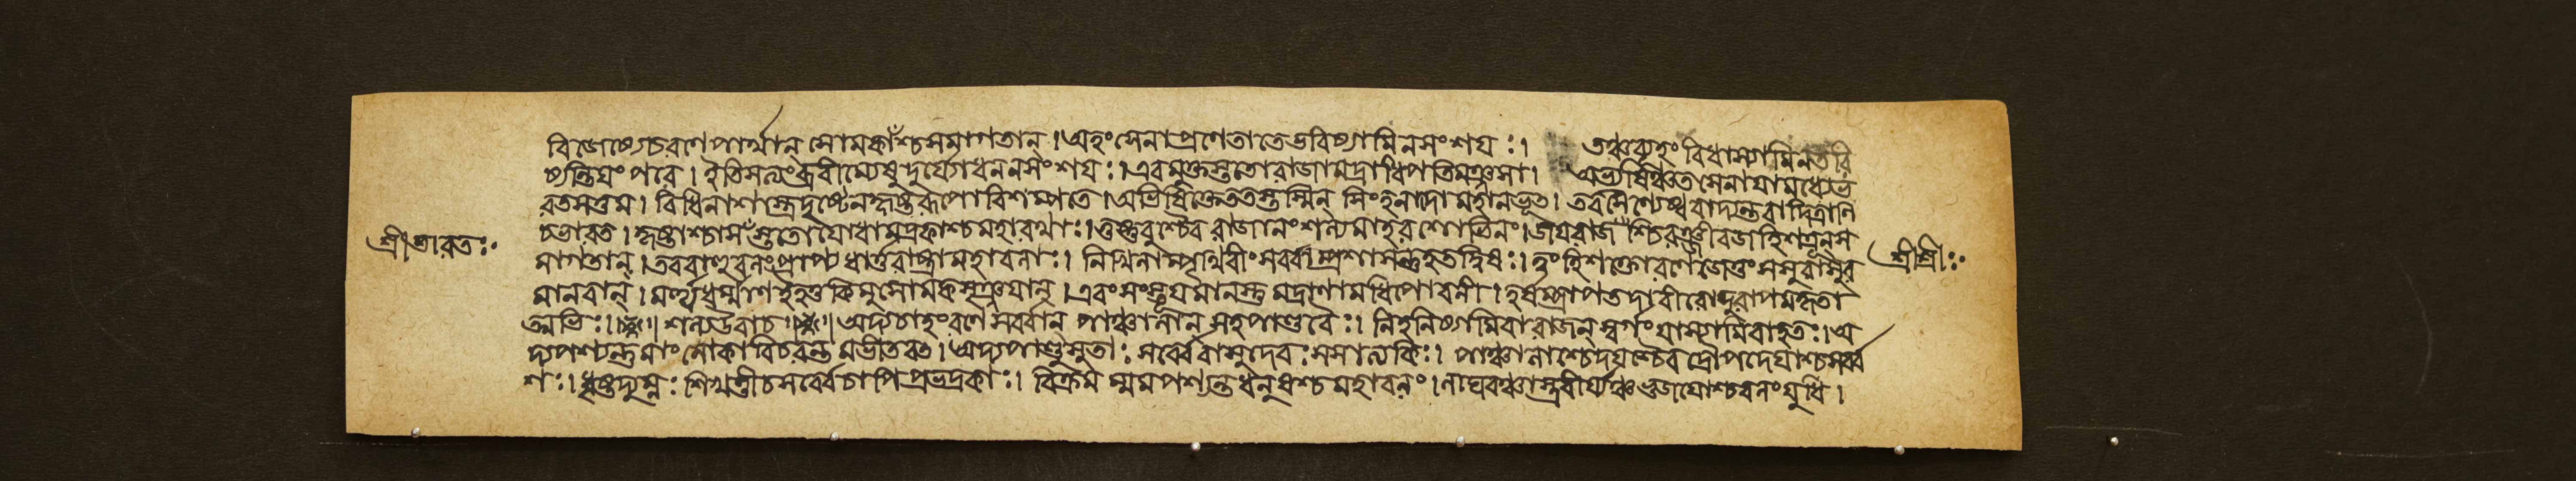 বিজেষ্যেচরণেপার্থান্ সোমকাঁশ্চসমাগতান্।অহংসেনাপ্রণেতাতেভবিষ্যামিনসংশয়ঃ। তঞ্চব্যূহংবিধাস্যামিনতরি
ষ্যন্তিযংপরে।ইতিসত্যংব্রবীম্যেষদুর্যোধননসংশয়ঃ।এবমুক্তস্ততোরাজামদ্রাধিপতিমঞ্জসা। অভ্যষিঞ্চতসেনায়ামধ্যেভ
রতসত্তম।বিধিনাশাস্ত্রদৃষ্টেনহৃষ্টরূপোবিশাম্পতে।অভিষিক্তেততস্তস্মিন্ সিংহনাদোমহানভূত্।তবসৈন্যেষ্ববাদ্যন্তবাদিত্রাণি
চভারত।হৃষ্টাশ্চাসঁস্ততোযোধামদ্রকাশ্চমহারথাঃ।তুষ্টুবুশ্চৈব রাজানংশল্যমাহবশোভিনং।জয়রাজঁশ্চিরঞ্জীবজহিশত্রূন্স
মাগতান্।তববাহুবলংপ্রাপ্যধার্ত্তরাষ্ট্রামহাবলাঃ। নিখিলাম্পৃথিবীংসর্ব্বাম্প্রশাসন্তুহতদ্বিষঃ।ত্বংহিশক্তোরণেজেতুংসসুরাসুর
মানবান্।মর্ত্যধর্ম্মাণইহতুকিমুসোমকসৃঞ্জয়ান্।এবংসংস্তূয়মানস্তু মদ্রাণামধিপোবলী।হর্ষম্প্রাপতদাবীরোদুরাপমকৃতা
ত্মভিঃ।॥শল্যউবাচ॥অদ্যচাহংরণেসর্ব্বান্ পাঞ্চালান্ সহপাণ্ডবৈঃ। নিহনিষ্যামিবারাজন্ স্বর্গংযাস্যামিবাহতঃ।অ
দ্যপশ্যন্তুমাংলোকাবিচরন্ত মভীতবত্।অদ্যপাণ্ডুসুতাঃ সর্ব্বেবাসুদেবঃসসাত্যকিঃ। পাঞ্চালাশ্চেদয়শ্চৈবদ্রৌপদেয়াশ্চসর্ব্ব
শঃ।ধৃষ্টদ্যুম্নঃ শিখণ্ডীচসর্ব্বেচাপিপ্রভদ্রকাঃ। বিক্রমম্মমপশ্যন্তুধনুষশ্চমহাবলং।লাঘবঞ্চাস্ত্রবীর্য্যঞ্চভুজয়োশ্চবলংযুধি।
শ্রীভারতঃ
শ্রীশ্রীঃ